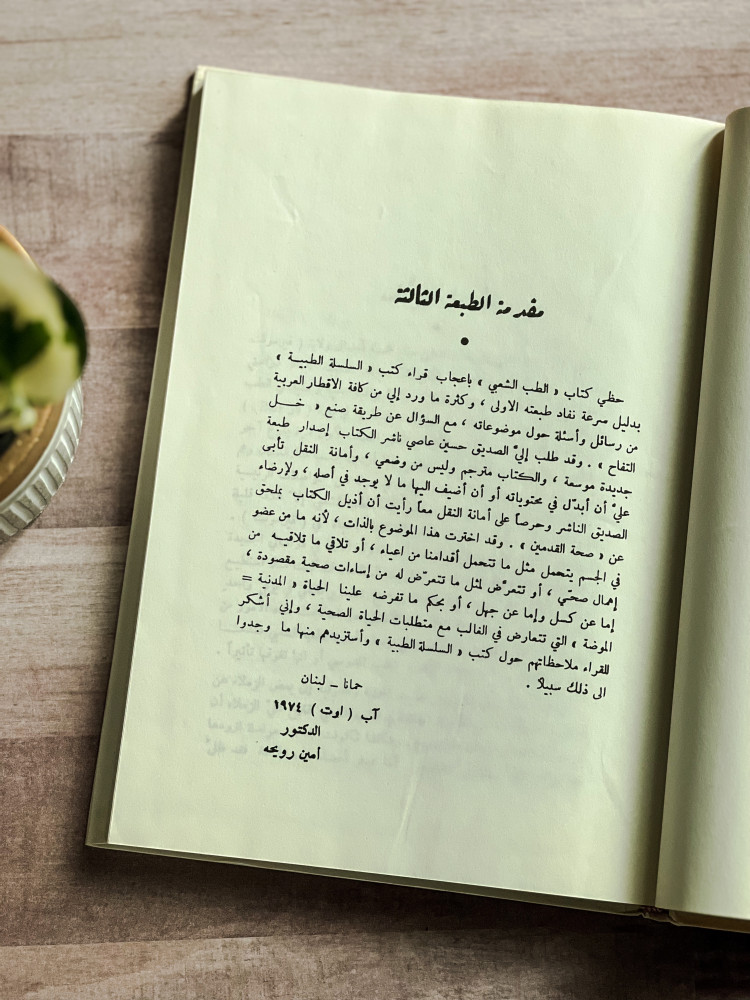 مقدمة الطبعة الثالثة
حظي كتاب « الطب الشعبي » باعجاب قراء كتب « السلسلة الطبيـة »
بدليل سرعة نفاد طبعته الاولى ، وكثرة ما ورد إلي من كافة الاقطار العربية
من رسائل وأسئلة حول موضوعاته ، مع السؤال عن طريقة صنع « خـــل
التفاح » . وقد طلب إليّ الصديق حسين عاصي ناشر الكتاب إصدار طبعة
جديدة موسعة ، والكتاب مترجم وليس من وضعي ، وأمانة النقل تأبى
عليّ أن أبدّل في محتوياته أو أن أضيف اليها ما لا يوجد في أصله ، ولإرضاء
الصديق الناشر وحرصاً على أمانة النقل معاً رأيت أن أذيل الكتاب بملحق
عن « صحة القدمين » . وقد اخترت هذا الموضوع بالذات ، لأنه ما من عضو
في الجسم يتحمل مثل ما تتحمل أقدامنا من اعياء ، أو تلاقي ما تلاقيـه من
إهمال صحّي ، أو تتعرّض لمثل ما تتعرّض له من إساءات صحية مقصودة ،
إما عن كسل وإما عن جهل ، أو بحكم ما تفرضه علينا الحياة « المدنية =
الموضة » التي تتعارض في الغالب مع متطلبات الحياة الصحية ، وإني أشكر
للقراء ملاحظاتهم حول كتب « السلسلة الطبية » وأستزيدهم منها ما وجدوا
الى ذلك سبيلاً .
حمانا – لبنان
آب ( اوت ) ١٩٧٤
الدكتور
أمين رويحه